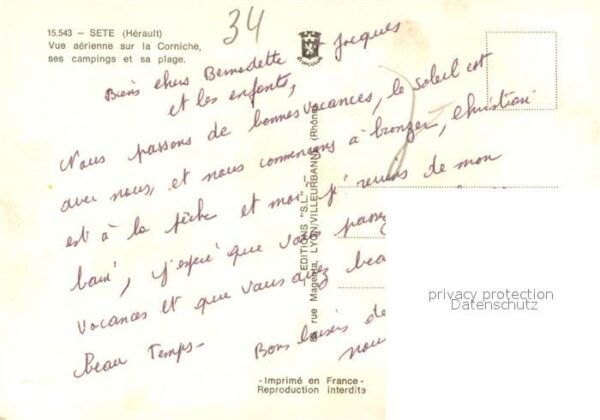 15.543 – SETE (Hérault)
Vue aérienne sur la Corniche,
ses campings et sa plage.
34
Biens chers Bernadette et Jacques
et les enfants,
Nous passons de bonnes vacances, le soleil est
avec nous, et nous commençons à bronzer, Christian
est à la pêche et moi je reviens de mon
bain, j'espère que vous passez
vacances et que vous avez beau
beau Temps -
Bons baisers de
nou
EDITIONS "S.L."
rue Magenta, LYON/VILLEURBANNE (Rhône)
- Imprimé en France -
Reproduction interdite
privacy protection
Datenschutz